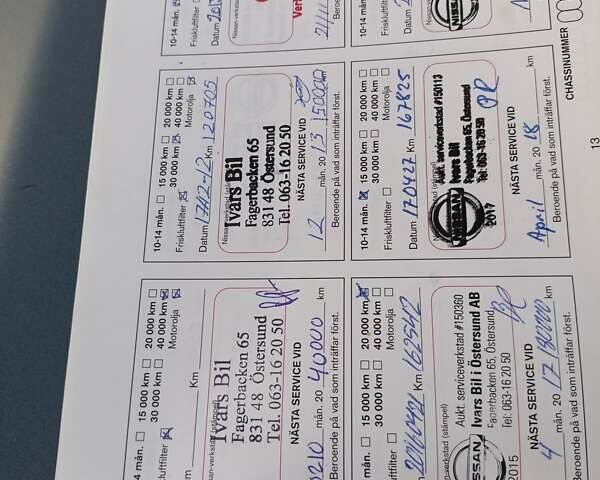 10-14 mån.
Friskluftfilter
Datum
Beroende
10-14 mån.
Friskluftfilter
Datum
CHASSINUMMER
13
10-14 mån. 15 000 km 20 000 km
30 000 km 40 000 km
Friskluftfilter Motorolja
Km 120705
Ivars Bil
Fagerbacken 65
831 48 Östersund
Tel. 063-16 20 50
NÄSTA SERVICE VID
12 mån. 20 13 150000 km
Beroende på vad som inträffar först.
10-14 mån. 15 000 km 20 000 km
30 000 km 40 000 km
Friskluftfilter Motorolja
Datum 170427 Km 167825
Aukt. serviceverkstad #150113
Ivars Bil
Fagerbacken 65, Östersund
Tel: 063-16 20 50
NISSAN
2017
NÄSTA SERVICE VID
April mån. 20 18 km
Beroende på vad som inträffar först.
mån. 15 000 km 20 000 km
30 000 km 40 000 km
kluftfilter Motorolja
Km
Ivars Bil
Fagerbacken 65
831 48 Östersund
Tel. 063-16 20 50
NÄSTA SERVICE VID
0210 mån. 20 40000 km
Beroende på vad som inträffar först.
mån. 15 000 km 20 000 km
30 000 km 40 000 km
kluftfilter Motorolja
Km 162542
(stämpel)
Aukt. serviceverkstad #150360
Ivars Bil i Östersund AB
Fagerbacken 65, Östersund
Tel: 063-16 20 50
SSAN
2015
NÄSTA SERVICE VID
4 mån. 20 17 180000 km
Beroende på vad som inträffar först.